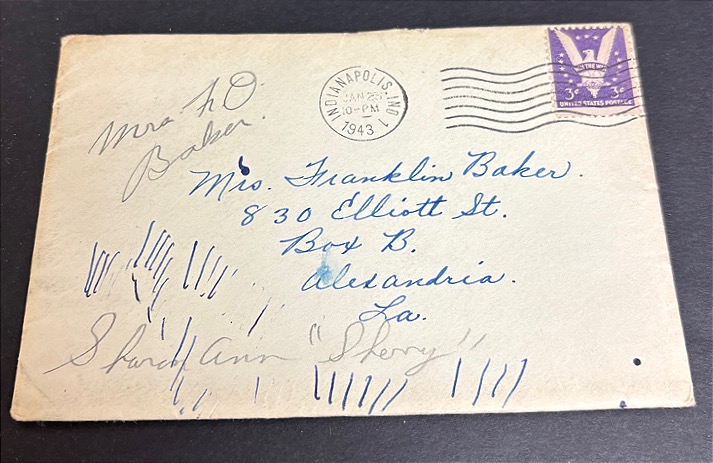 INDIANAPOLIS, IND. 1
JAN 23
10-PM
1943
WIN THE WAR
3¢ 3¢
UNITED STATES POSTAGE
Mrs. F. D.
Baker.
Mrs. Franklin Baker.
830 Elliott St.
Box B.
Alexandria.
La.
Ann "Sherry"